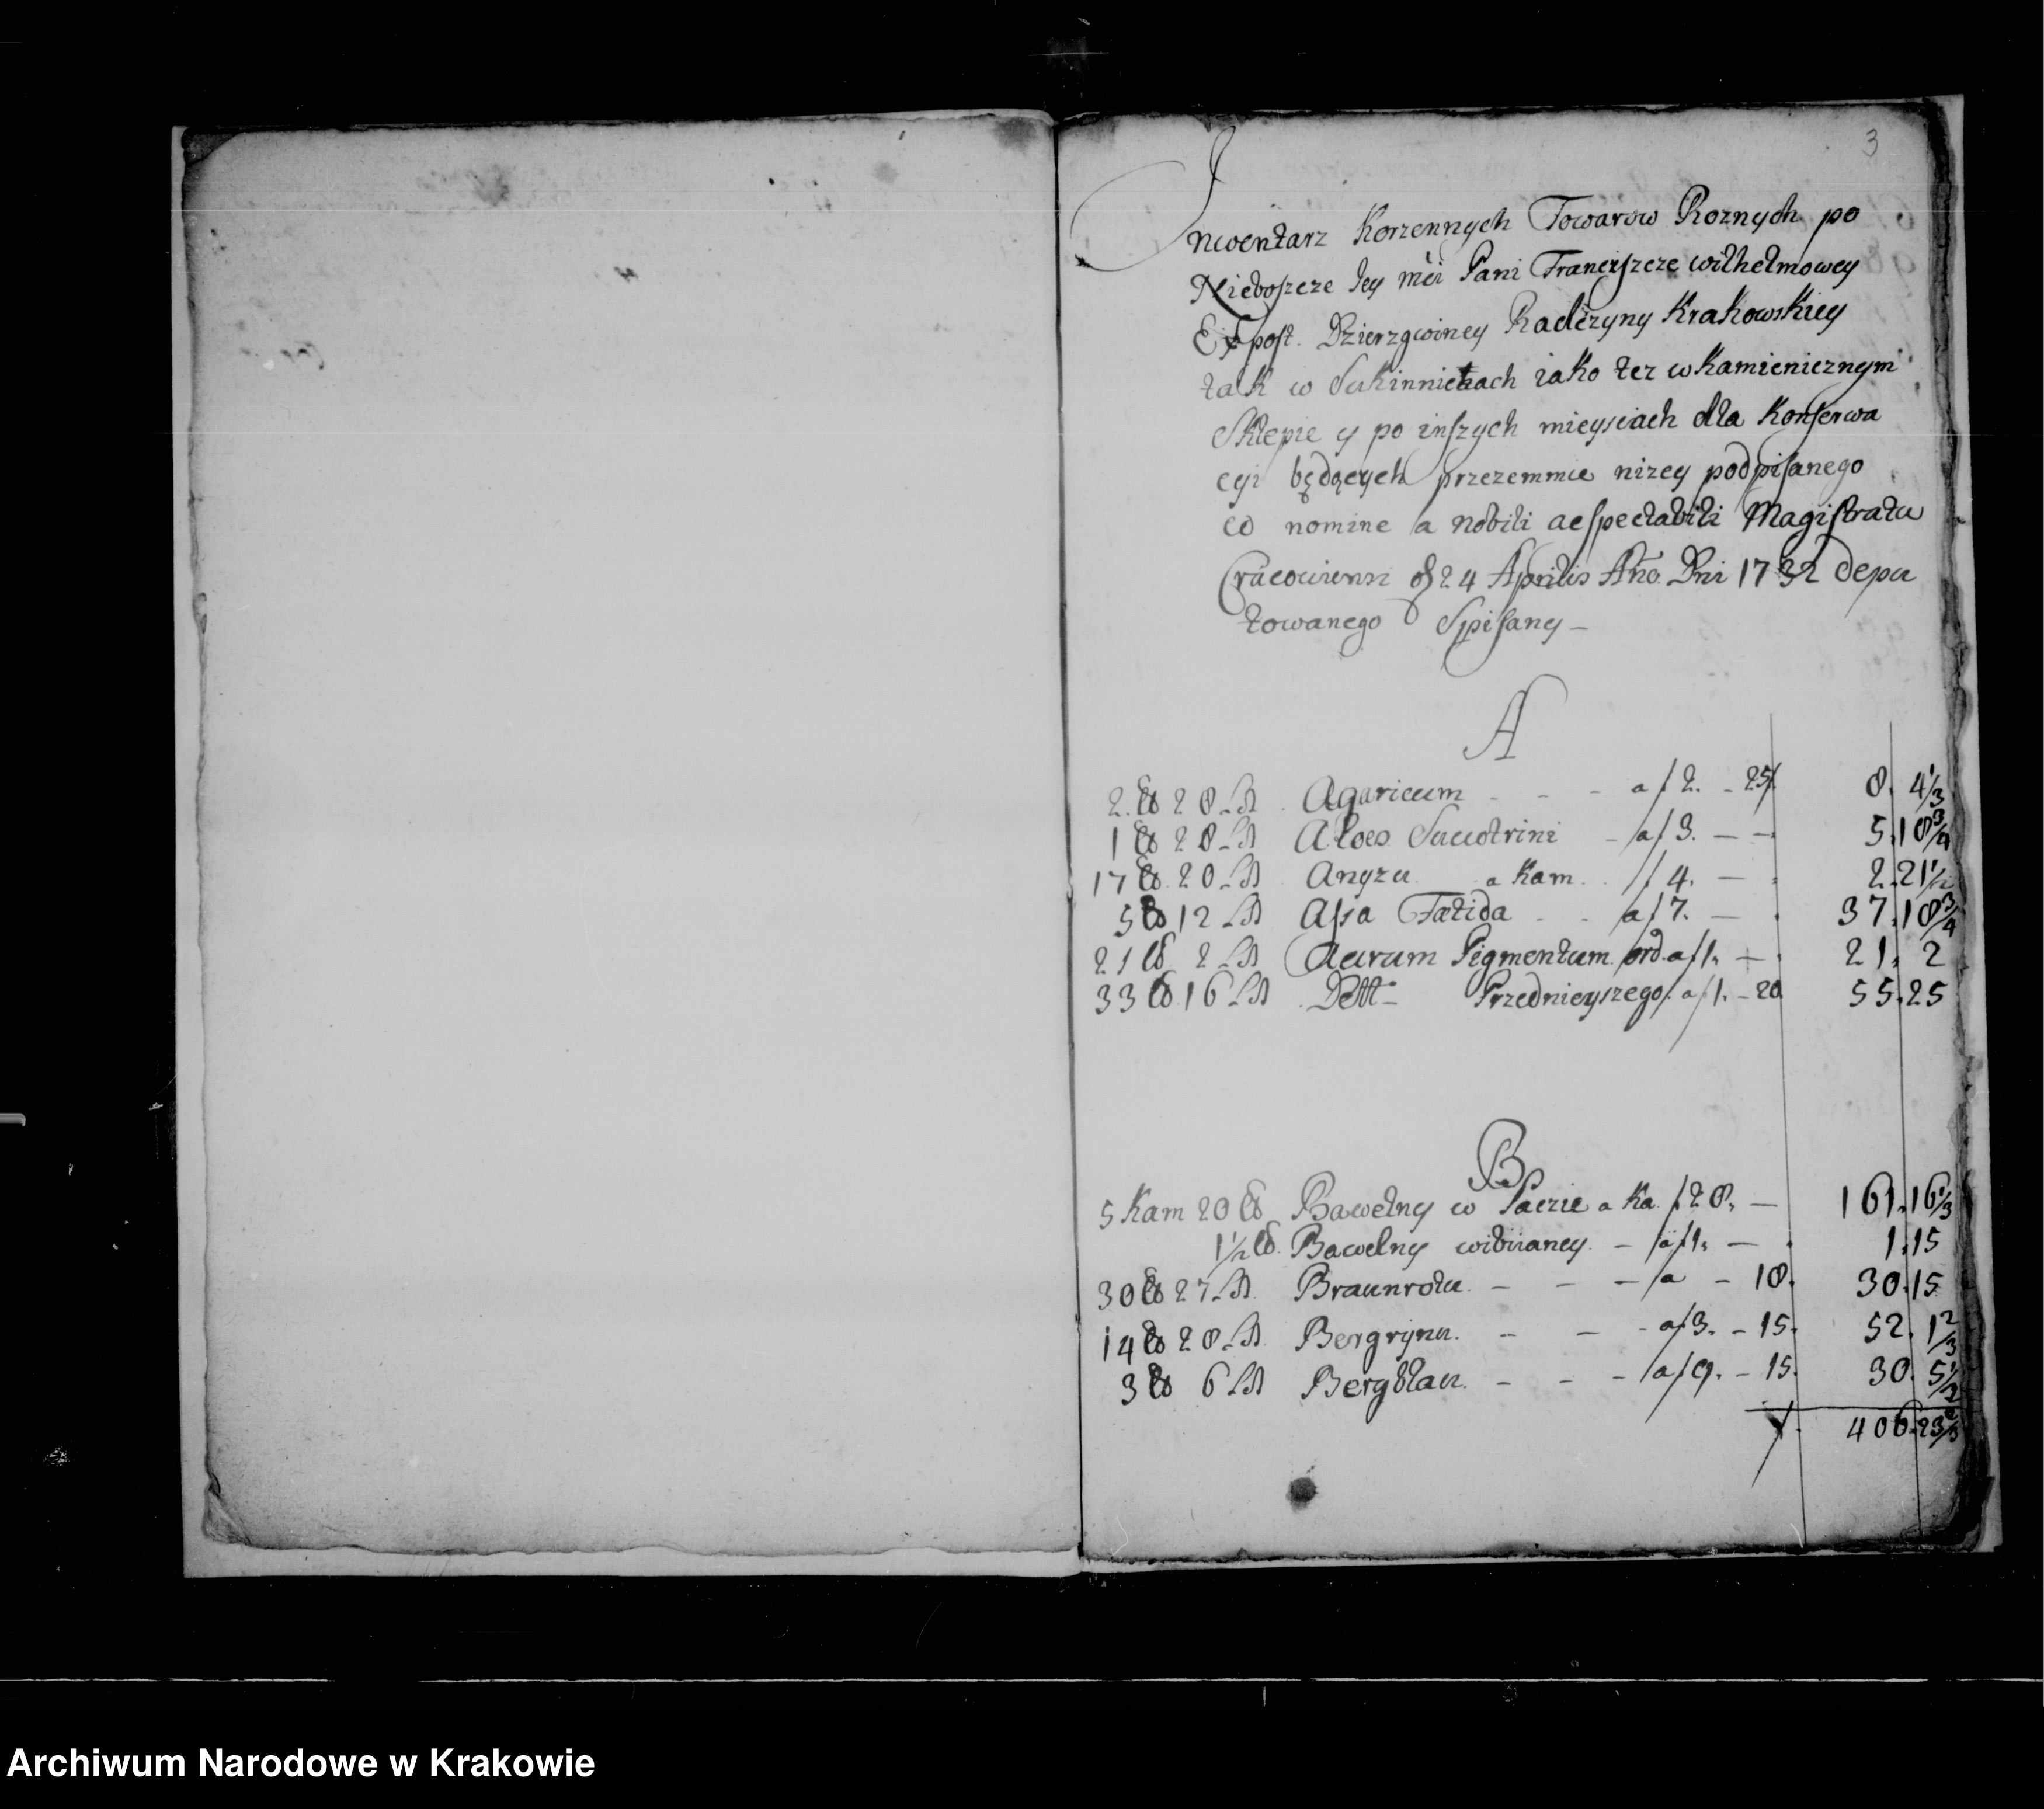 3
Inwentarz Korzennych Towarow Roznych po
Nieboszcze Jey Mci Pani Franciszcze Wilhelmowey
Ex post. Dzierzgwiney Radczyny Krakowskiey
tak w Sukinnicach iako tez w Kamienicznym
Sklepie y po inszych mieyscach dla Konserwa
cyi będących przezemnie nizey podpisanego
eo nomine a nobili ac spectabili Magistratu
Cracoviensi 24 Aprilis Ano Dni 1732 depu
towanego Spisany –
A
2. ℔ 28 Lt Agaricum - - - a f 2. - 25 8. 4 1/3
1 ℔ 28 Lt Aloes Succotrini - a f 3. — — 5. 18 3/4
17 ℔ 20 Lt Anyzu a Kam. f 4. — 2. 21 1/2
5 ℔ 12 Lt Assa Fœtida - - a f 7. — 37. 18 3/4
21 ℔ 2 Lt Aurum Pigmentum ord. a f 1. — 21. 2
33 ℔ 16 Lt Dett- Przednieyszego a f 1. - 20 55. 25
B
5 Kam 20 ℔ Bawełny w Paczie a Ka f 28. — 161. 16 1/3
1 1/2 ℔ Bawelny wibiianey - a f 1. — 1. 15
30 ℔ 27 Lt Braunrotu - - - a - 18. 30. 15
14 ℔ 28 Lt Bergrynu. - - - a f 3. - 15. 52. 1 2/3
3 ℔ 6 Lt Bergblau. - - - a f 9. - 15. 30. 5 1/2
f 406. 23
Archiwum Narodowe w Krakowie